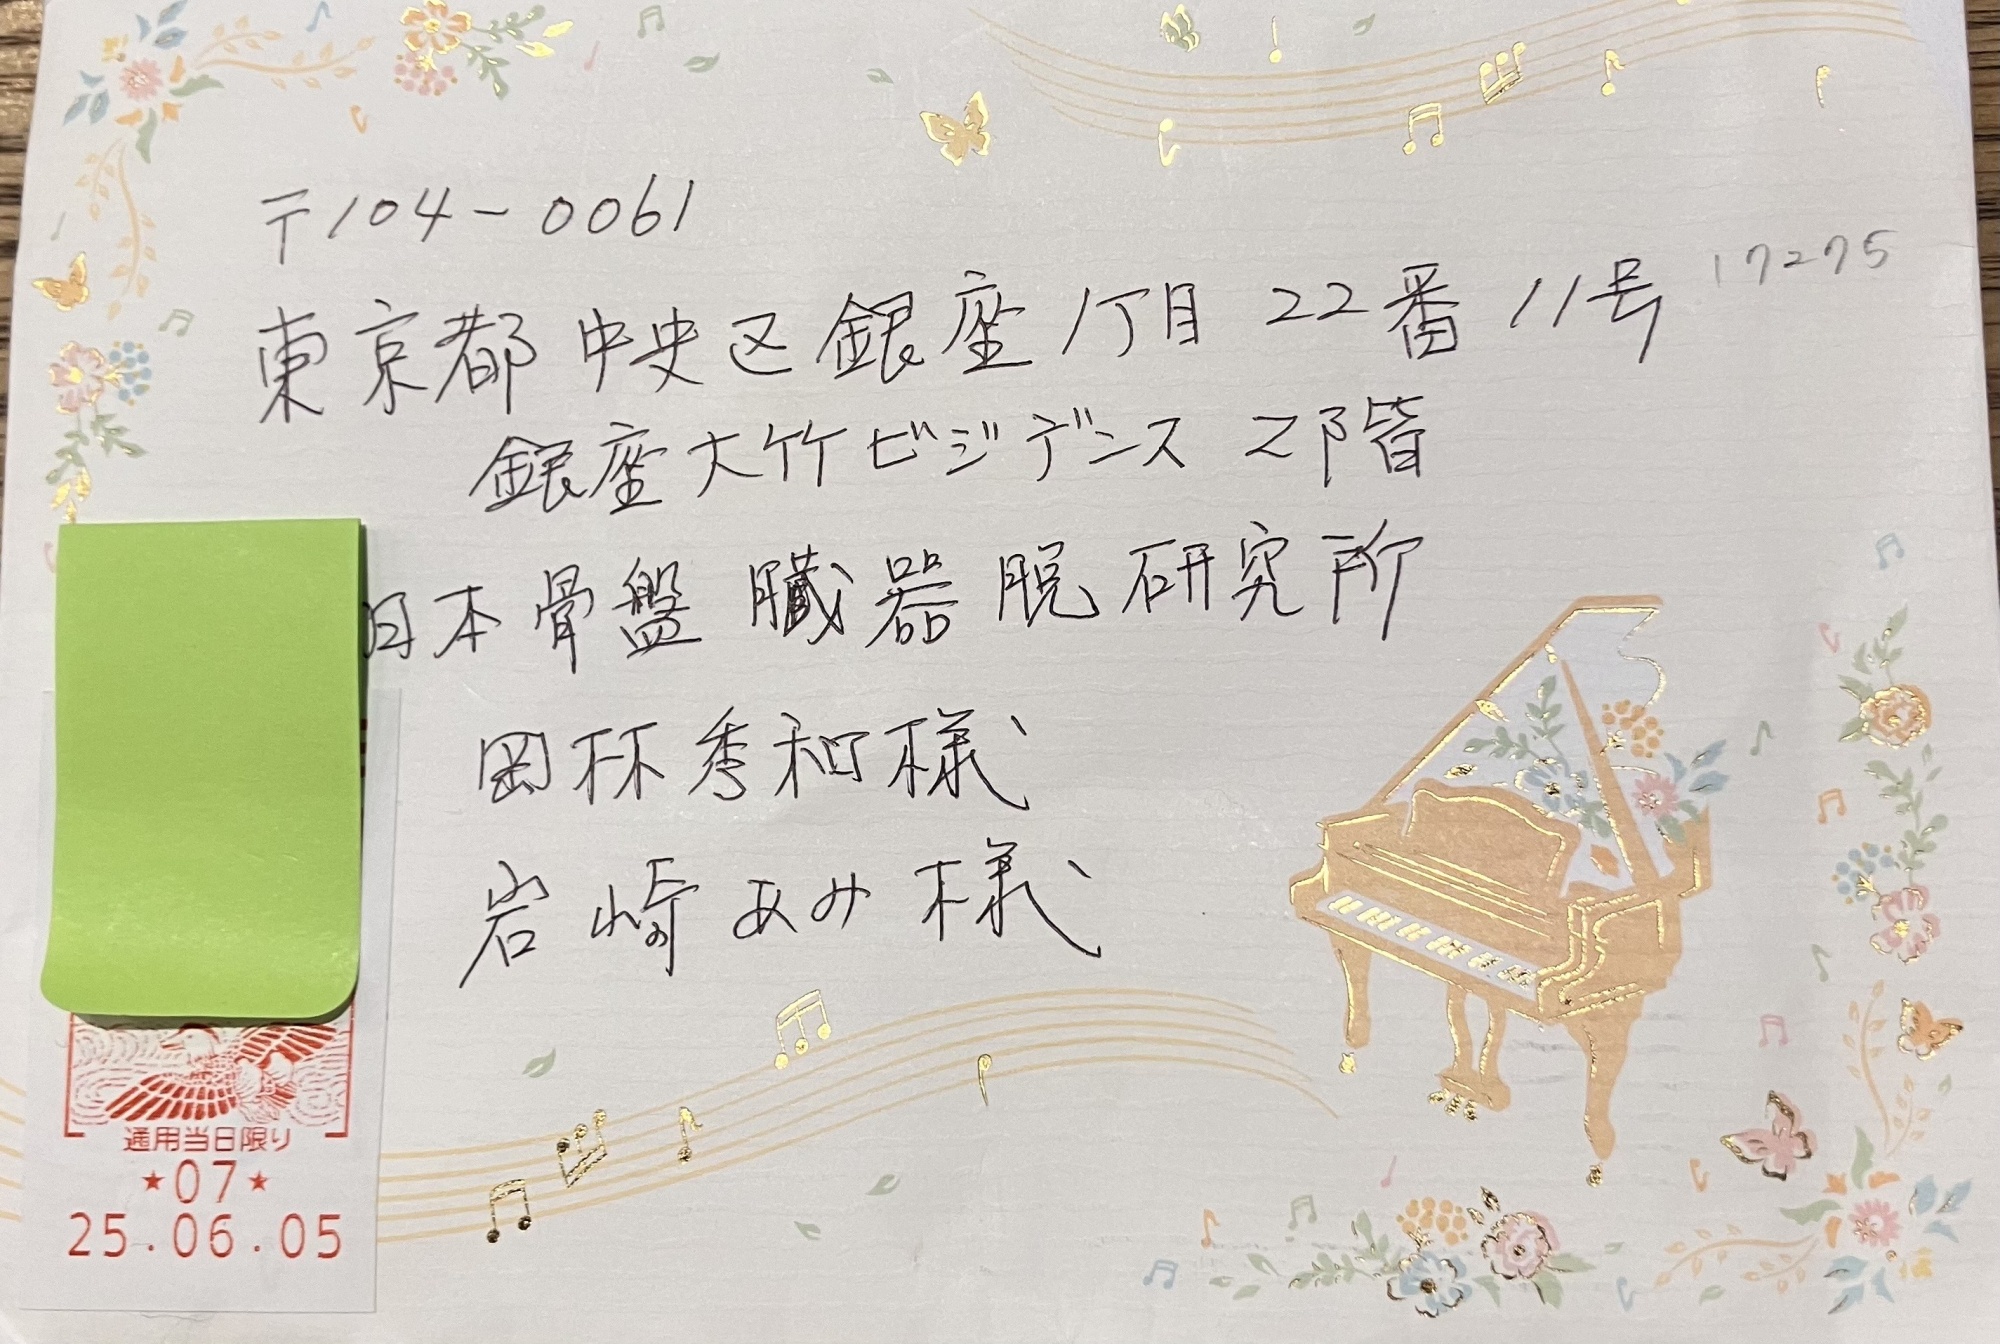 〒104-0061
東京都中央区銀座1丁目22番11号 17275
銀座大竹ビジデンス 2階
日本骨盤臓器脱研究所
岡林秀和様
岩崎あみ様
通用当日限り
★07★
25.06.05